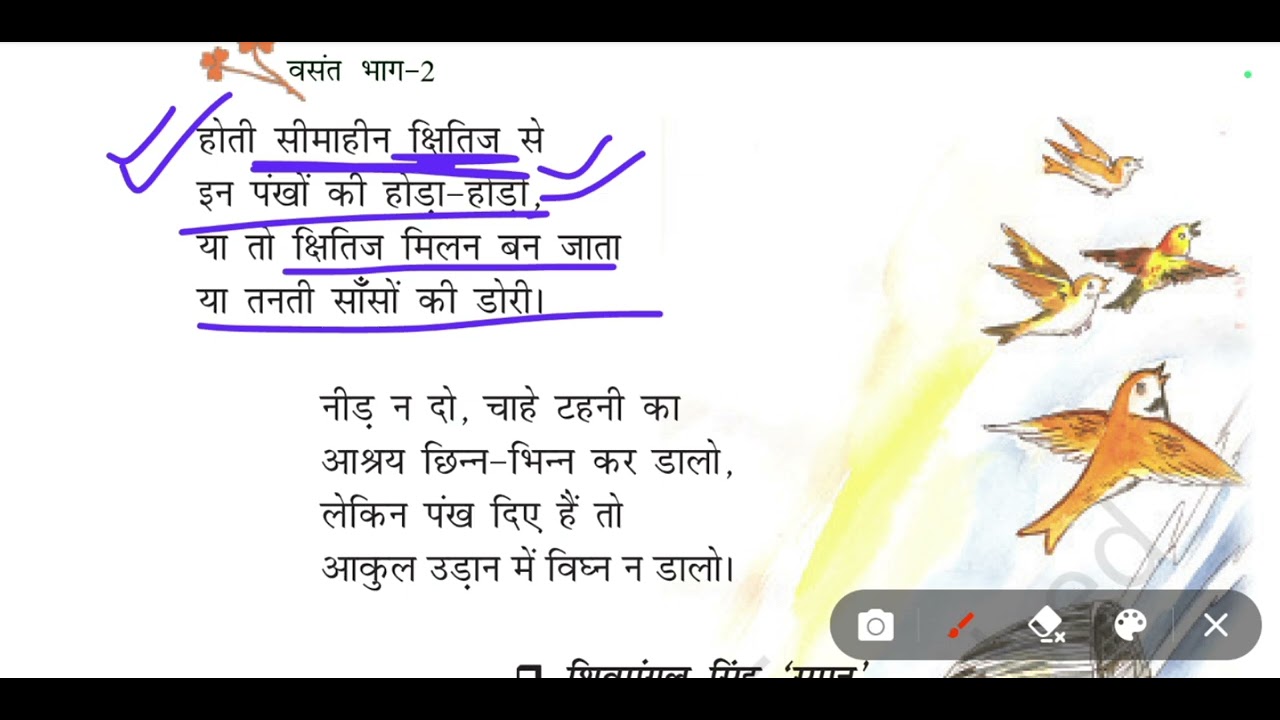 वसंत भाग-2
होती सीमाहीन क्षितिज से
इन पंखों की होड़ा-होड़ी,
या तो क्षितिज मिलन बन जाता
या तनती साँसों की डोरी।
नीड़ न दो, चाहे टहनी का
आश्रय छिन्न-भिन्न कर डालो,
लेकिन पंख दिए हैं तो
आकुल उड़ान में विघ्न न डालो।
शिवमंगल सिंह 'सुमन'